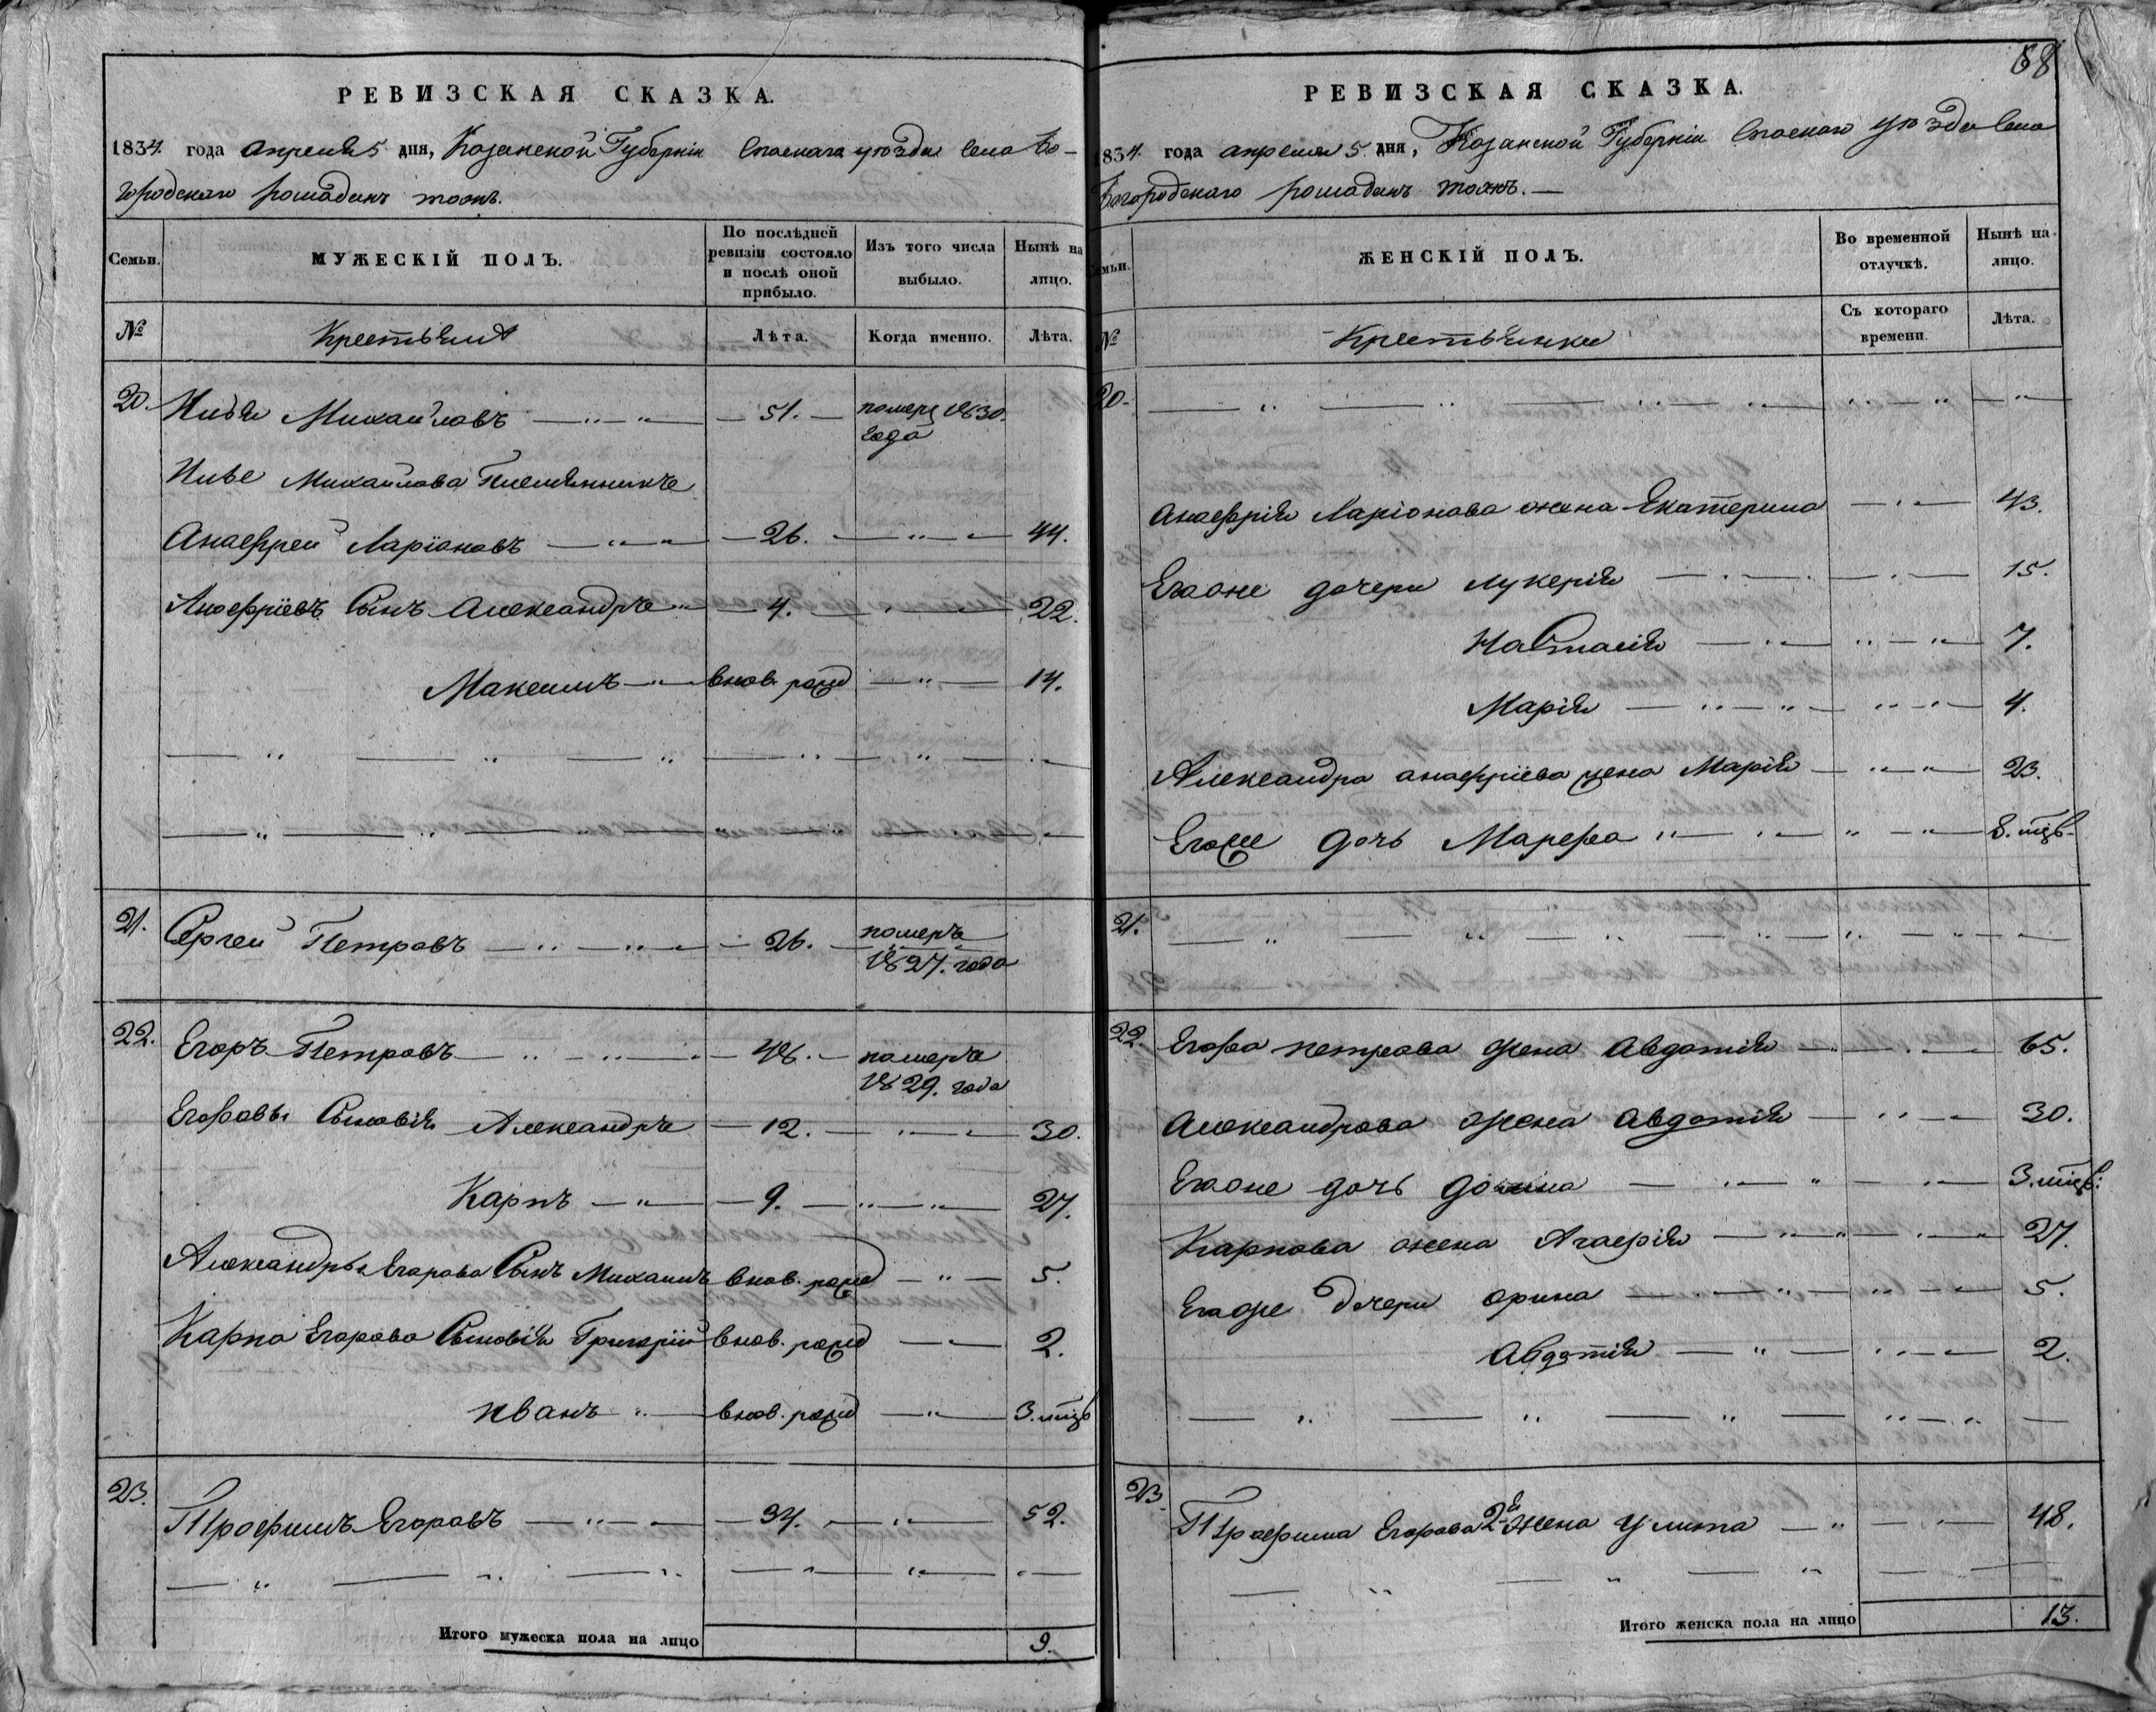 РЕВИЗСКАЯ СКАЗКА.
1834 года апреля 5 дня, Казанской Губернiи Спаскаго уѣзда села Бо-
городскаго тожъ.
Семьи.
МУЖЕСКIЙ ПОЛЪ.
По послѣдней
ревизiи состояло
и послѣ оной
прибыло.
Изъ того числа
выбыло.
Нынѣ на
лицо.
№
Крестьяня
Лѣта.
Когда именно.
Лѣта.
20. Илья Михайловъ 51. померъ 1830.
года
Ильи Михайлова Племянники
Анофрей Ларiоновъ 26. 44.
Анофрiевъ Сынъ Александръ 4. 22.
Максимъ внов. рожд 14.
21. Сергей Петровъ 26. померъ
1827. года
22. Егоръ Петровъ 48. померъ
1829. года
Егоровы Сыновiя Александръ 12. 30.
Карпъ 9. 27.
Александра Егорова Сынъ Михаилъ внов. рожд 5.
Карпа Егорова Сыновiя Григорiй внов. рожд 2.
иванъ внов. рожд 3. мцъ
23. Трофимъ Егоровъ 34. 52.
Итого мужеска пола на лицо 9.
68
РЕВИЗСКАЯ СКАЗКА.
1834. года апреля 5 дня, Казанской Губернiи Спаскаго уѣзда села
Богородскаго тожъ.
Семьи.
ЖЕНСКIЙ ПОЛЪ.
Во временной
отлучкѣ.
Нынѣ на
лицо.
№
Крестьянки
Съ котораго
времени
Лѣта.
20.
Анофрiя Ларiонова жена Екатерина 43.
Егоже дочери лукерiя 15.
Настасiя 7.
Марiя 4.
Александра анофрiева жена Марiя 23.
Егоже дочь Марфа 8. мцв
21.
22. Егора петрова жена Авдотiя 65.
Александрова жена Авдотiя 30.
Егоже дочь 3. мцв.
Карпова жена Агафiя 27.
Егоже дочери орина 5.
Авдотiя 2.
23. Трофима Егорова 2я жена Улита 48.
Итого женска пола на лицо 13.